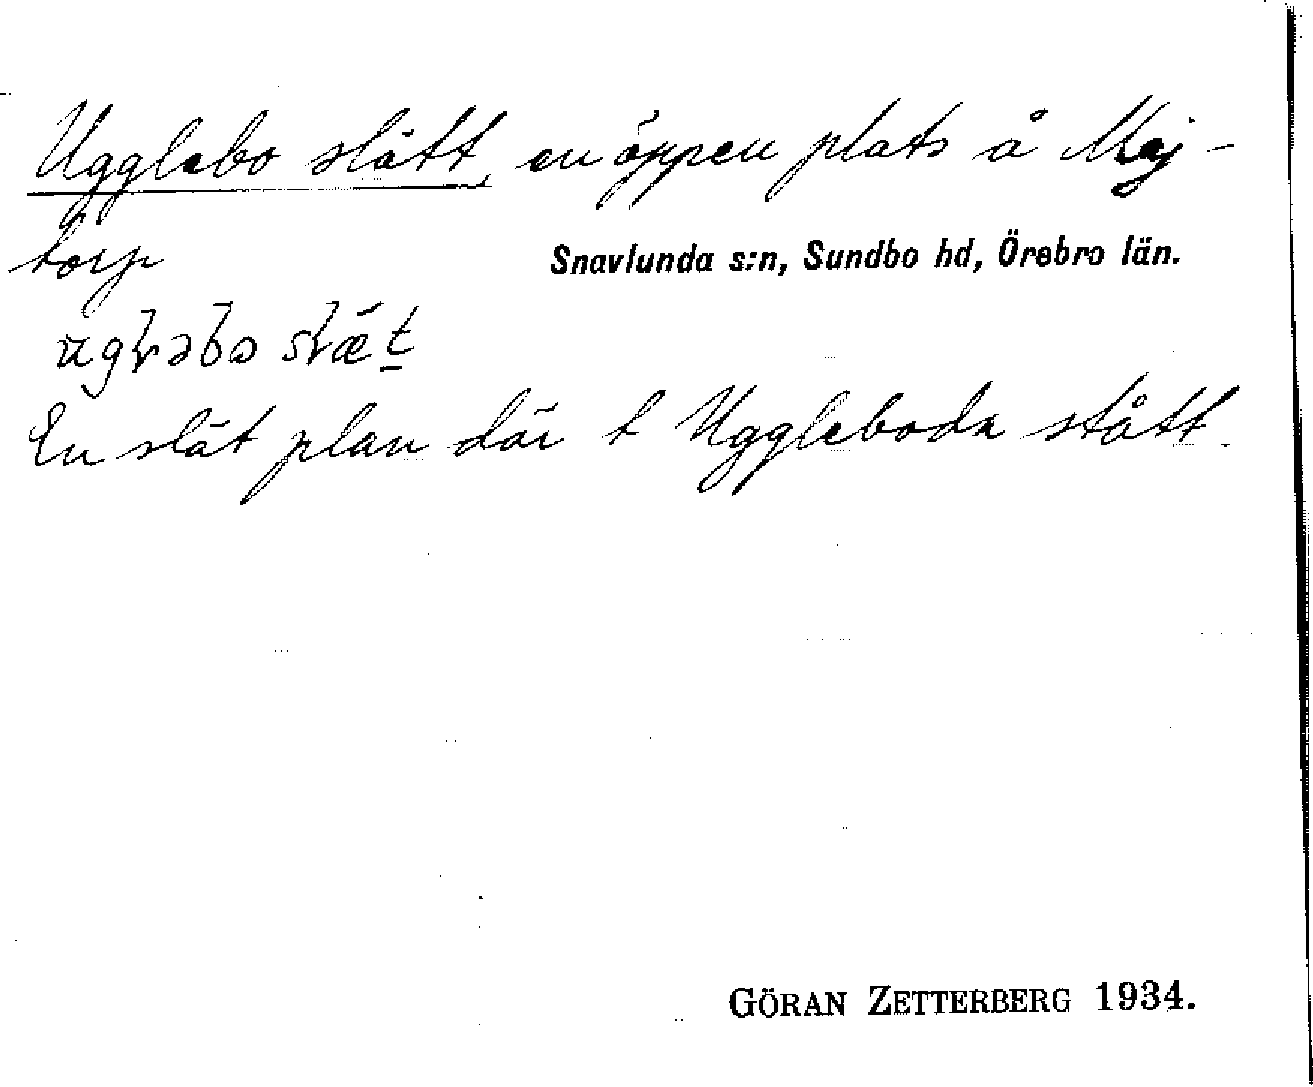 Ugglebo slätt, en öppen plats å Maj-
torp
Snavlunda s:n, Sundbo hd, Örebro län.
En slät plan där t Uggleboda stått.
GÖRAN ZETTERBERG 1934.